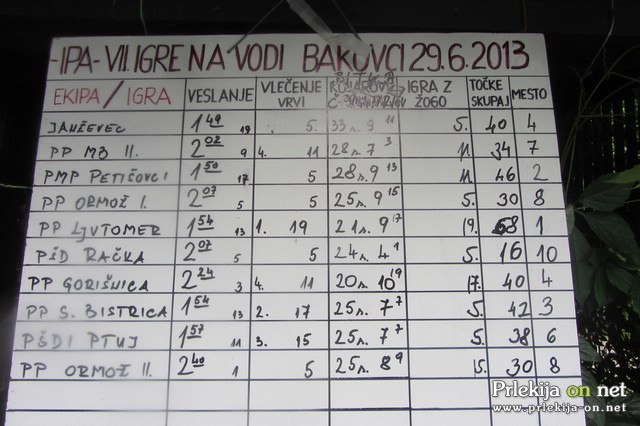 -IPA- VII. IGRE NA VODI BAKOVCI 29.6.2013
EKIPA / IGRA VESLANJE VLEČENJE VRVI IGRA Z ŽOGO TOČKE SKUPAJ MESTO
JANŽEVEC 1 49 19 5. 33 n. 9 11 5. 40 4
PP MB II. 2 02 9 4. 11 28 n. 7 3 11. 34 7
PMP PETIŠOVCI 1 50 17 5 28 n. 9 13 11. 46 2
PP ORMOŽ I. 2 07 5 5 25 n. 9 15 5. 30 8
PP LJUTOMER 1 54 13 1. 19 21 n. 9 17 19. 68 1
PŠD RAČKA 2 07 5 5 24 n. 4 1 5. 16 10
PP GORIŠNICA 2 24 3 4. 11 20 n. 10 19 17. 40 4
PP S. BISTRICA 1 54 13 2. 17 25 n. 7 7 5. 42 3
PŠDI PTUJ 1 57 11 3. 15 25 n. 7 7 5. 38 6
PP ORMOŽ II. 2 40 1 5 25 n. 8 9 15. 30 8
Prlekija on net
www.prlekija-on.net